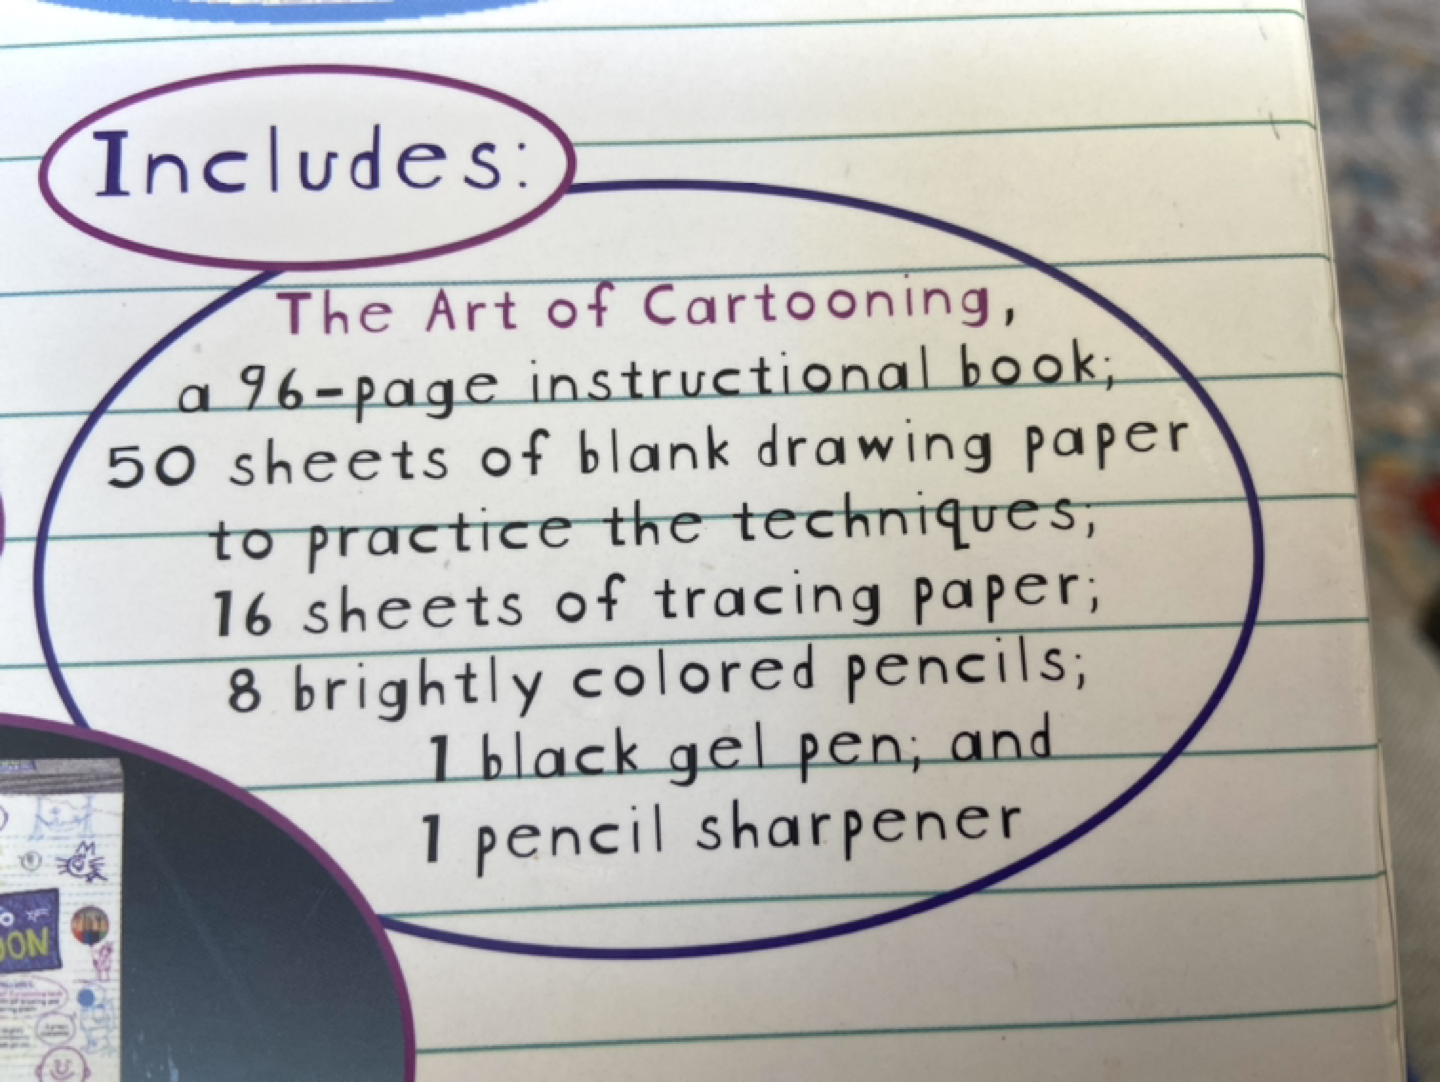 Includes:
The Art of Cartooning,
a 96-page instructional book;
50 sheets of blank drawing paper
to practice the techniques;
16 sheets of tracing paper;
8 brightly colored pencils;
1 black gel pen; and
1 pencil sharpener